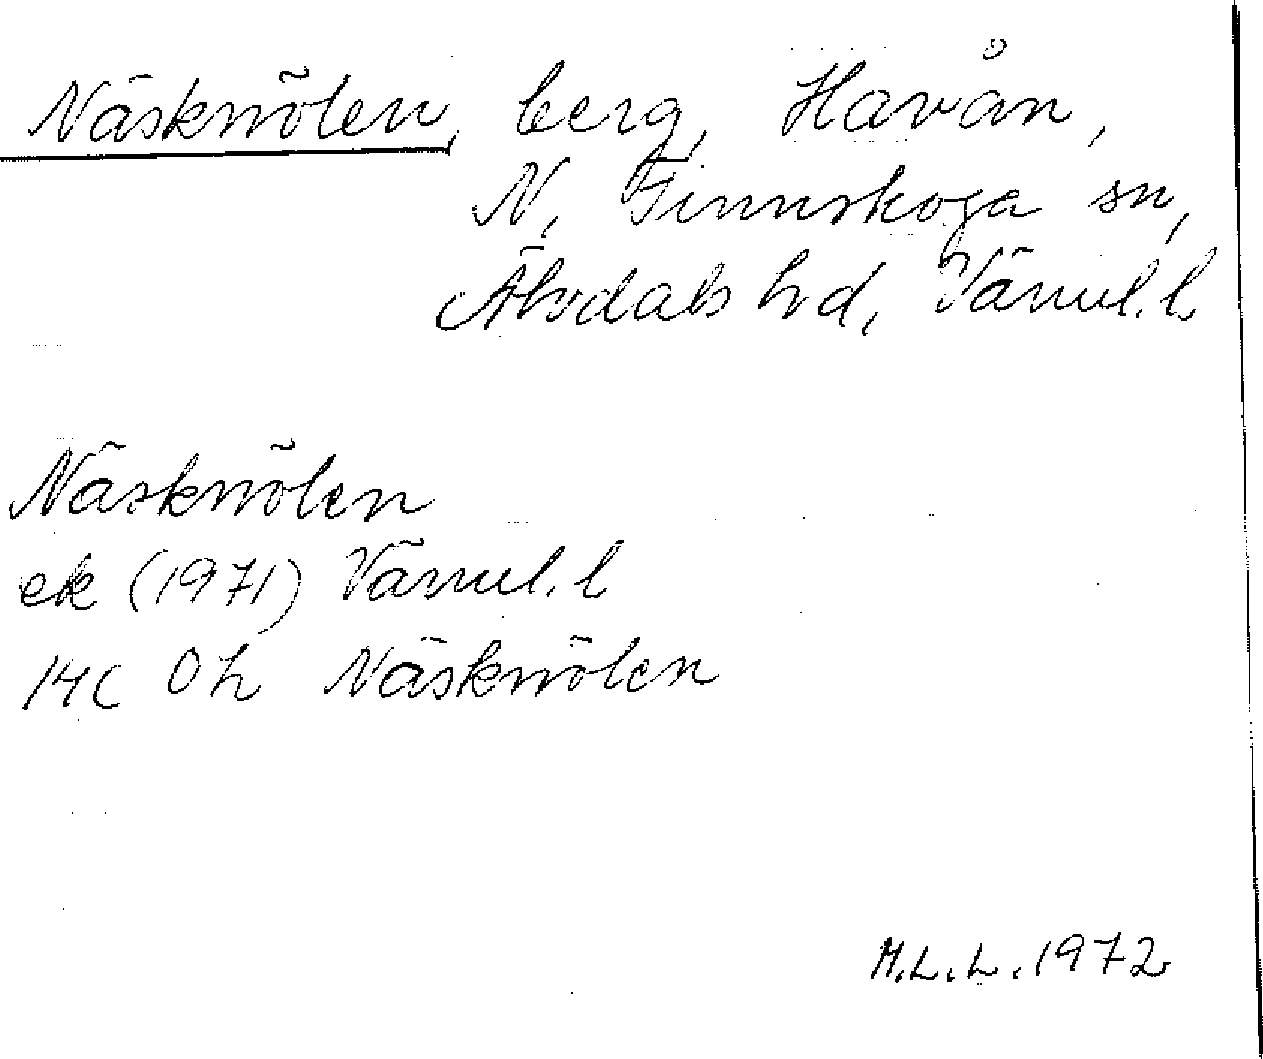 Näsknölen, berg, Havån,
N. Finnskoga sn,
Älvdals hd, Värml. l.
Näsknölen
ek (1971) Värml. l
14C 0h Näsknölen
M.L.L. 1972